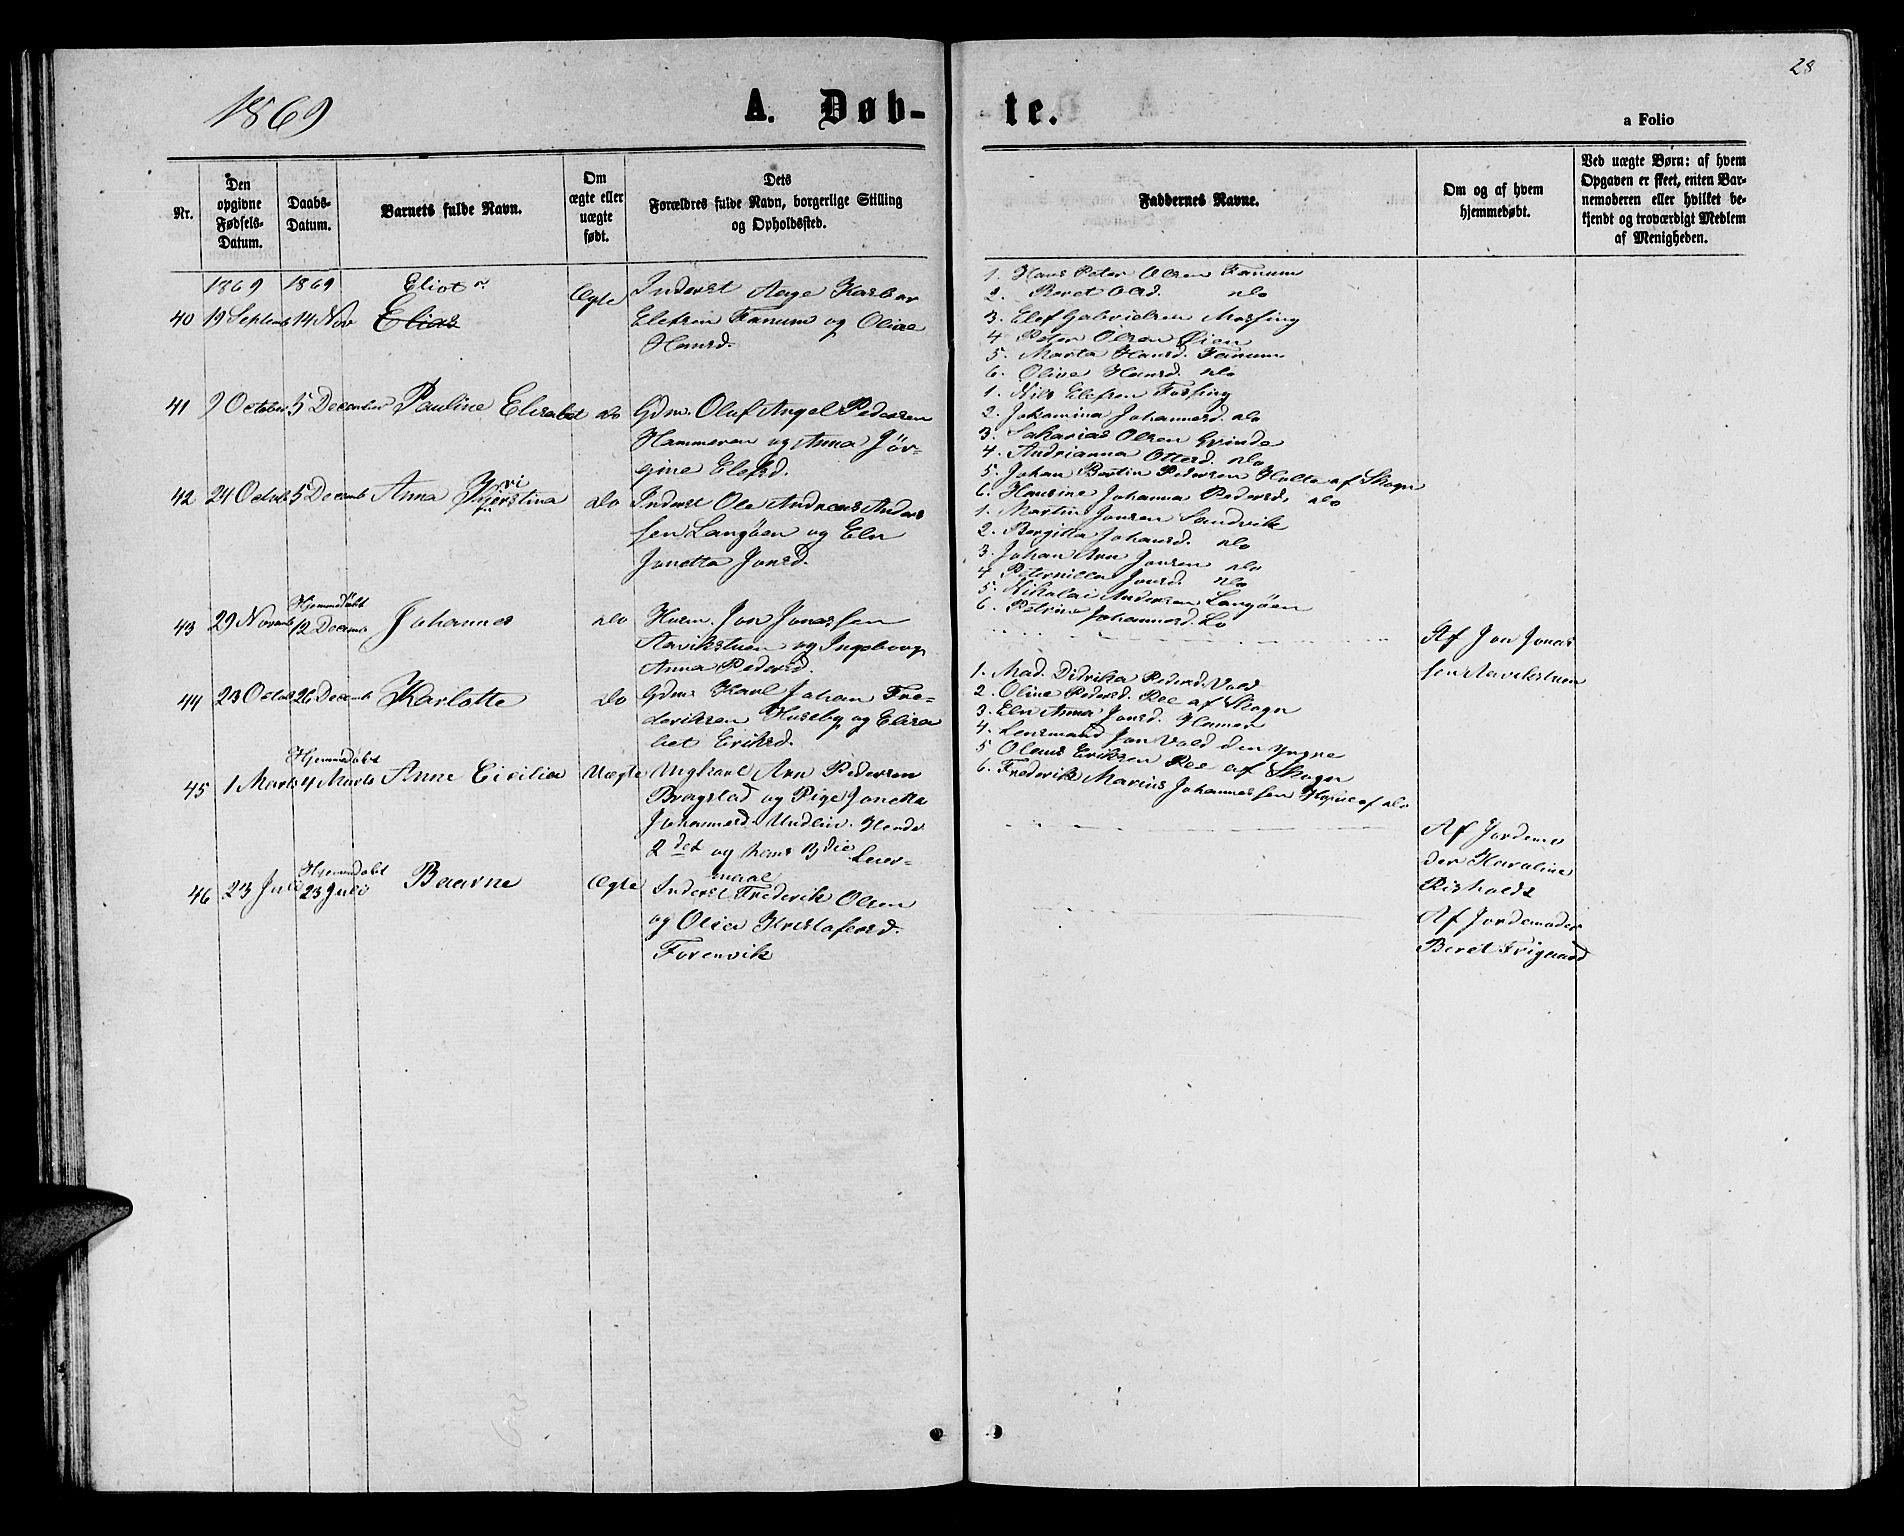 28
1869
A. Døb-
te.
a Folio
Nr.
Den
opgivne
Fødsels-
Datum.
Daabs-
Datum.
Barnets fulde Navn.
Om
ægte eller
uægte
født.
Dets
Forældres fulde Navn, borgerlige Stilling
og Opholdssted.
Faddernes Navne.
Om og af hvem
hjemmedøbt.
Ved uægte Børn: af hvem
Opgaven er skeet, enten Bar-
nemoderen eller hvilket be-
kjendt og troværdigt Medlem
af Menigheden.
1869 1869 Eliot
40 19 Septemb 14 Nov Elias Ægte Inderst Aage Kasber
Elefsen Fanum og Oline
Hansd.
1. Hans Peter Olsen Fanum
2. Beret Olsd. do
3. Elef Gabrielsen Mossing
4 Peter Olsen Øien
5. Marta Hansd. Fanum
6. Olive Hansd. do
41 9 October 5 December Pauline Elisabet do Gdm. Oluf Angel Pedersen
Hammeren og Anna Jør-
gine Elefsd.
1. Nils Elefsen Fossing
2. Johamina Johannesd. do
3. Sakarias Olsen Grinde
4. Andrianna Ottersd. do
5. Johan Bertin Pedersen Holte af Skogn
6. Hansine Johanna Pedersd. do
42 24 Octob 5 Decemb Anna Kjerstina do Inderst Ole Andreas Anders
sen Langøen og Eln
Jonetta Jonsd.
1. Martin Jonsen Sandvik
2. Bergitta Johansd. do
3. Johan Arn Jonsen do
4 Peternilla Jonsd. do
5. Nikolai Andersen Langøen
6. Petrine Johannesd. do
43 29 Novemb Hjemmedøbt
12 Decemb Johannes do Husm. Jon Jonassen
Aavikstuen og Ingeborg
Anna Pedersd.
Af Jon Jonas
sen Aavikstuen
44 23 Octob 26 Decemb Karlotte do Gdm. Karl Johan Fre-
deriksen Huseby og Elisa
bet Eriksd.
1. Mad. Didrika Pedersd. Vold
2. Oline Pedersd. Ree af Skogn
3. Eln Anna Jonsd. Hamer
4. Lensmand Jon Vold den yngre
5 Olaus Eriksen Ree af Skogn
6. Frederik Marius Johannessen Hojne af do
45 1 Marts Hjemmedøbt
4 Marts Anne Cicilie Uægte Ungkarl Arn Pedersen
Bragstad og Pige Jonetta
Johannesd. Undlin. Hendes
2det og hans 13die Leier-
maal
Af Jordemo
der Karaline
Risholdt
46 23 Juli Hjemmedøbt
23 Juli Baarne Ægte Inderst Frederik Olsen
og Olia Kristofersd.
Forenvik
Af Jordemoder
Beret Frigaard